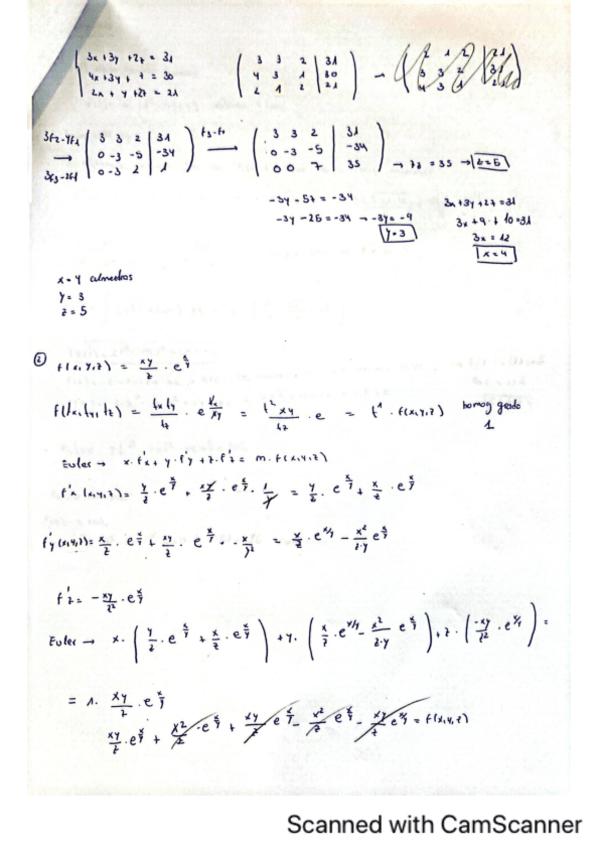 3x + 3y + 2z = 31
4x + 3y + z = 30
2x + y + 2z = 21
( 3 3 2 | 31
4 3 1 | 30
2 1 2 | 21 ) →
3f2-4f1
→
3f3-2f1
( 3 3 2 | 31
0 -3 -5 | -34
0 -3 2 | 1 )
f3-f2
→
( 3 3 2 | 31
0 -3 -5 | -34
0 0 7 | 35 ) → 7z = 35 → z=5
-3y - 5z = -34
-3y - 25 = -34 → -3y = -9
y=3
3x + 3y + 2z = 31
3x + 9 + 10 = 31
3x = 12
x = 4
x = 4
y = 3
z = 5
f(x,y,z) = xy/z · e^(x/y)
f(tx,ty,tz) = tx ty/tz · e = t² xy/tz · e = t¹ · f(x,y,z) homog grado 1
Euler → x · f'x + y · f'y + z · f'z = m · f(x,y,z)
f'x (x,y,z) = y/z · e^(x/y) + xy/z · e^(x/y) · 1/y = y/z · e^(x/y) + x/z · e^(x/y)
f'y (x,y,z) = x/z · e^(x/y) + xy/z · e^(x/y) · -x/y² = x/z · e^(x/y) - x²/z·y e^(x/y)
f'z = - xy/z² · e^(x/y)
Euler → x · ( y/z · e^(x/y) + x/z · e^(x/y) ) + y · ( x/z · e^(x/y) - x²/z·y e^(x/y) ) + z · ( -xy/z² · e^(x/y) ) =
= 1 · xy/z · e^(x/y)
xy/z · e^(x/y) + x²/z · e^(x/y) + xy/z e^(x/y) - x²/z e^(x/y) - xy/z e^(x/y) = f(x,y,z)
Scanned with CamScanner